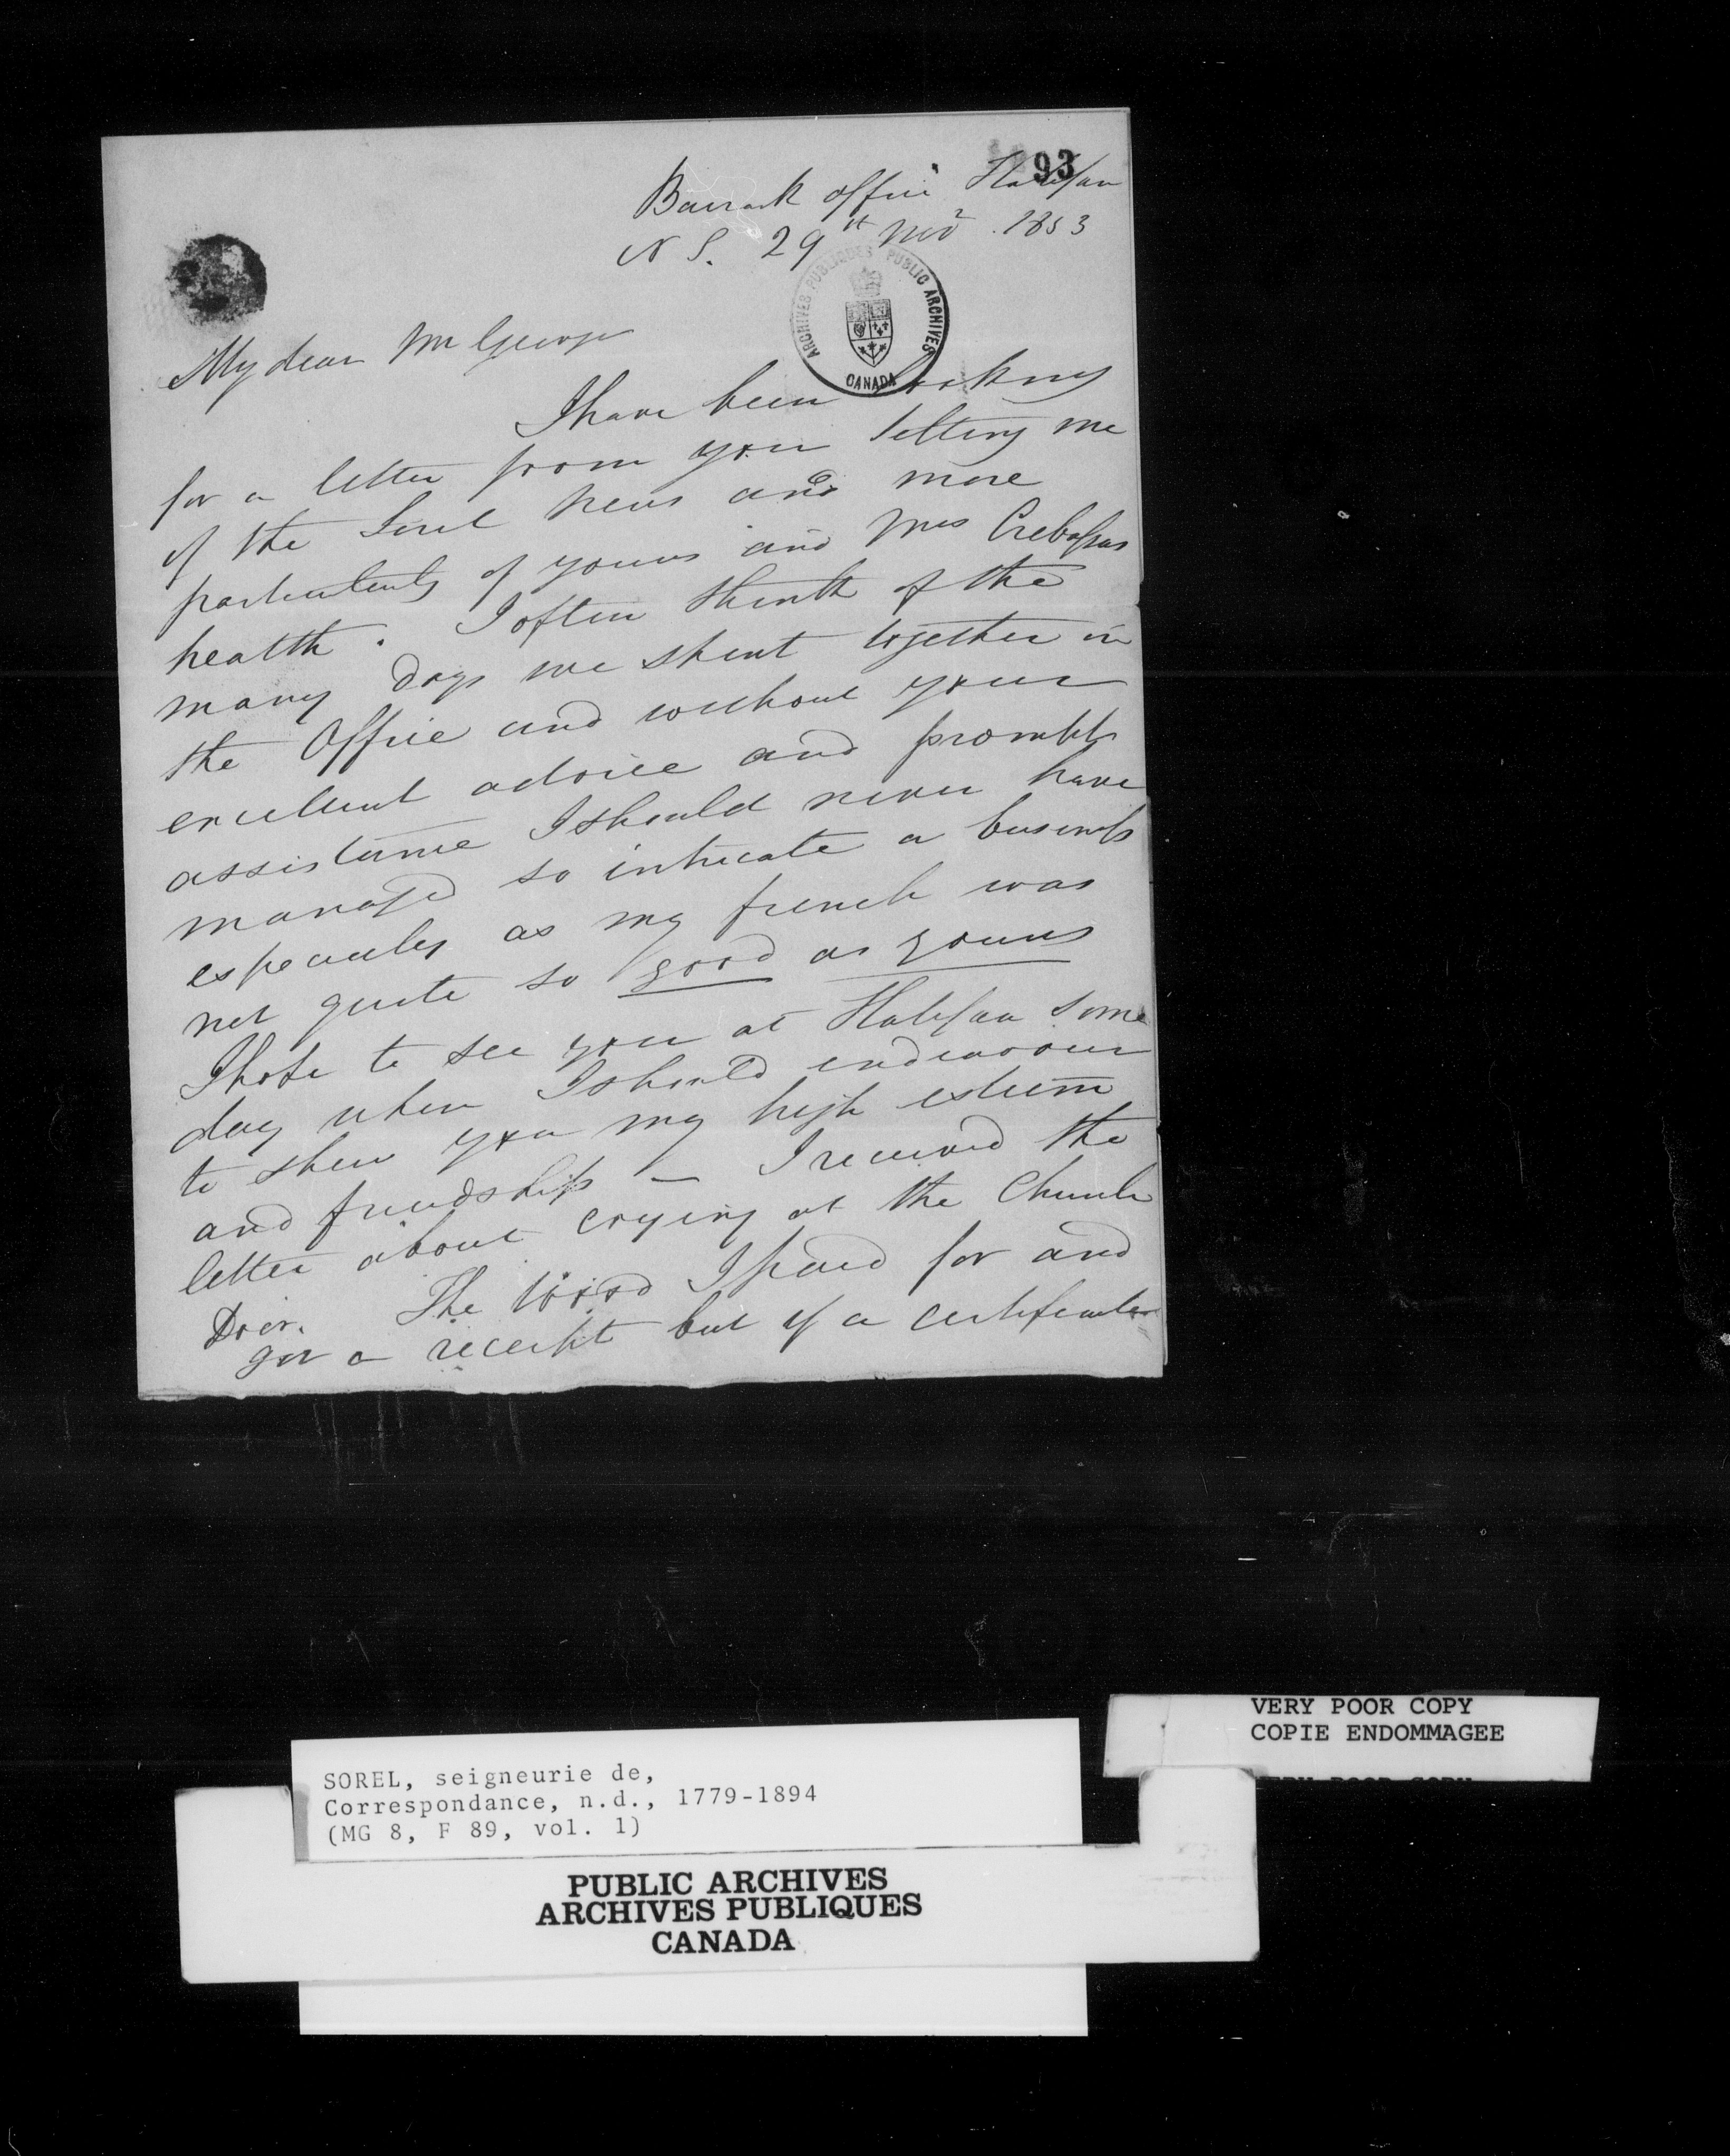 93
Barrack Office Halifax
N S. 29th Nov 1853
ARCHIVES PUBLIQUES PUBLIC ARCHIVES
CANADA
My dear Mr George
I have been looking
for a letter from you telling me
of the Sorel news and more
particularly of yours and Mrs Crebassas
health. I often think of the
many days we spent together in
the Office and without your
excellent advice and prompt
assistance I should never have
managed so intricate a business
especially as my french was
not quite so good as yours
I hope to see you at Halifax some
day when I should endeavour
to shew you my high esteem
and friendship – I received the
letter about crying at the Church
Door. The wood I paid for and
got a receipt but if a certificate
VERY POOR COPY
COPIE ENDOMMAGEE
SOREL, seigneurie de,
Correspondance, n.d., 1779-1894
(MG 8, F 89, vol. 1)
PUBLIC ARCHIVES
ARCHIVES PUBLIQUES
CANADA